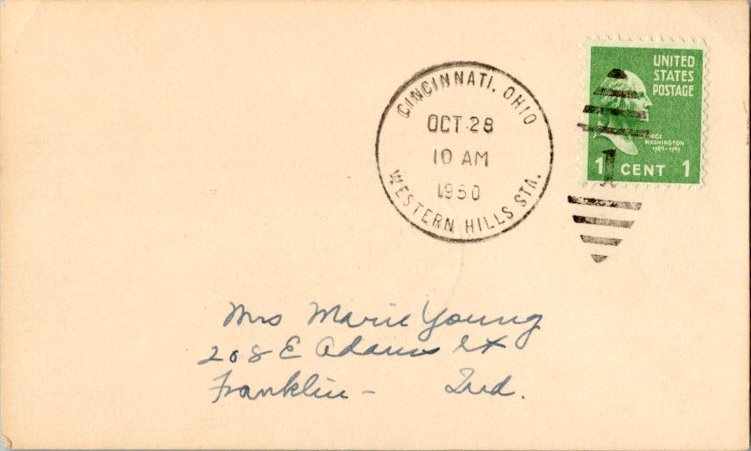 CINCINNATI, OHIO
OCT 28
10 AM
1950
WESTERN HILLS STA.
UNITED
STATES
POSTAGE
WASHINGTON
1789-1797
1 CENT 1
1
Mrs Marie Young
208 E Adams St
Franklin - Ind.